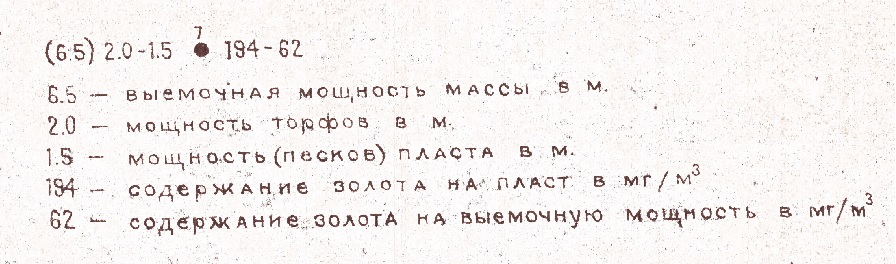 7
(6.5) 2.0-1.5 ● 194-62
6.5 — выемочная мощность массы в м.
2.0 — мощность торфов в м.
1.5 — мощность (песков) пласта в м.
194 — содержание золота на пласт в мг/м³
62 — содержание золота на выемочную мощность в мг/м³